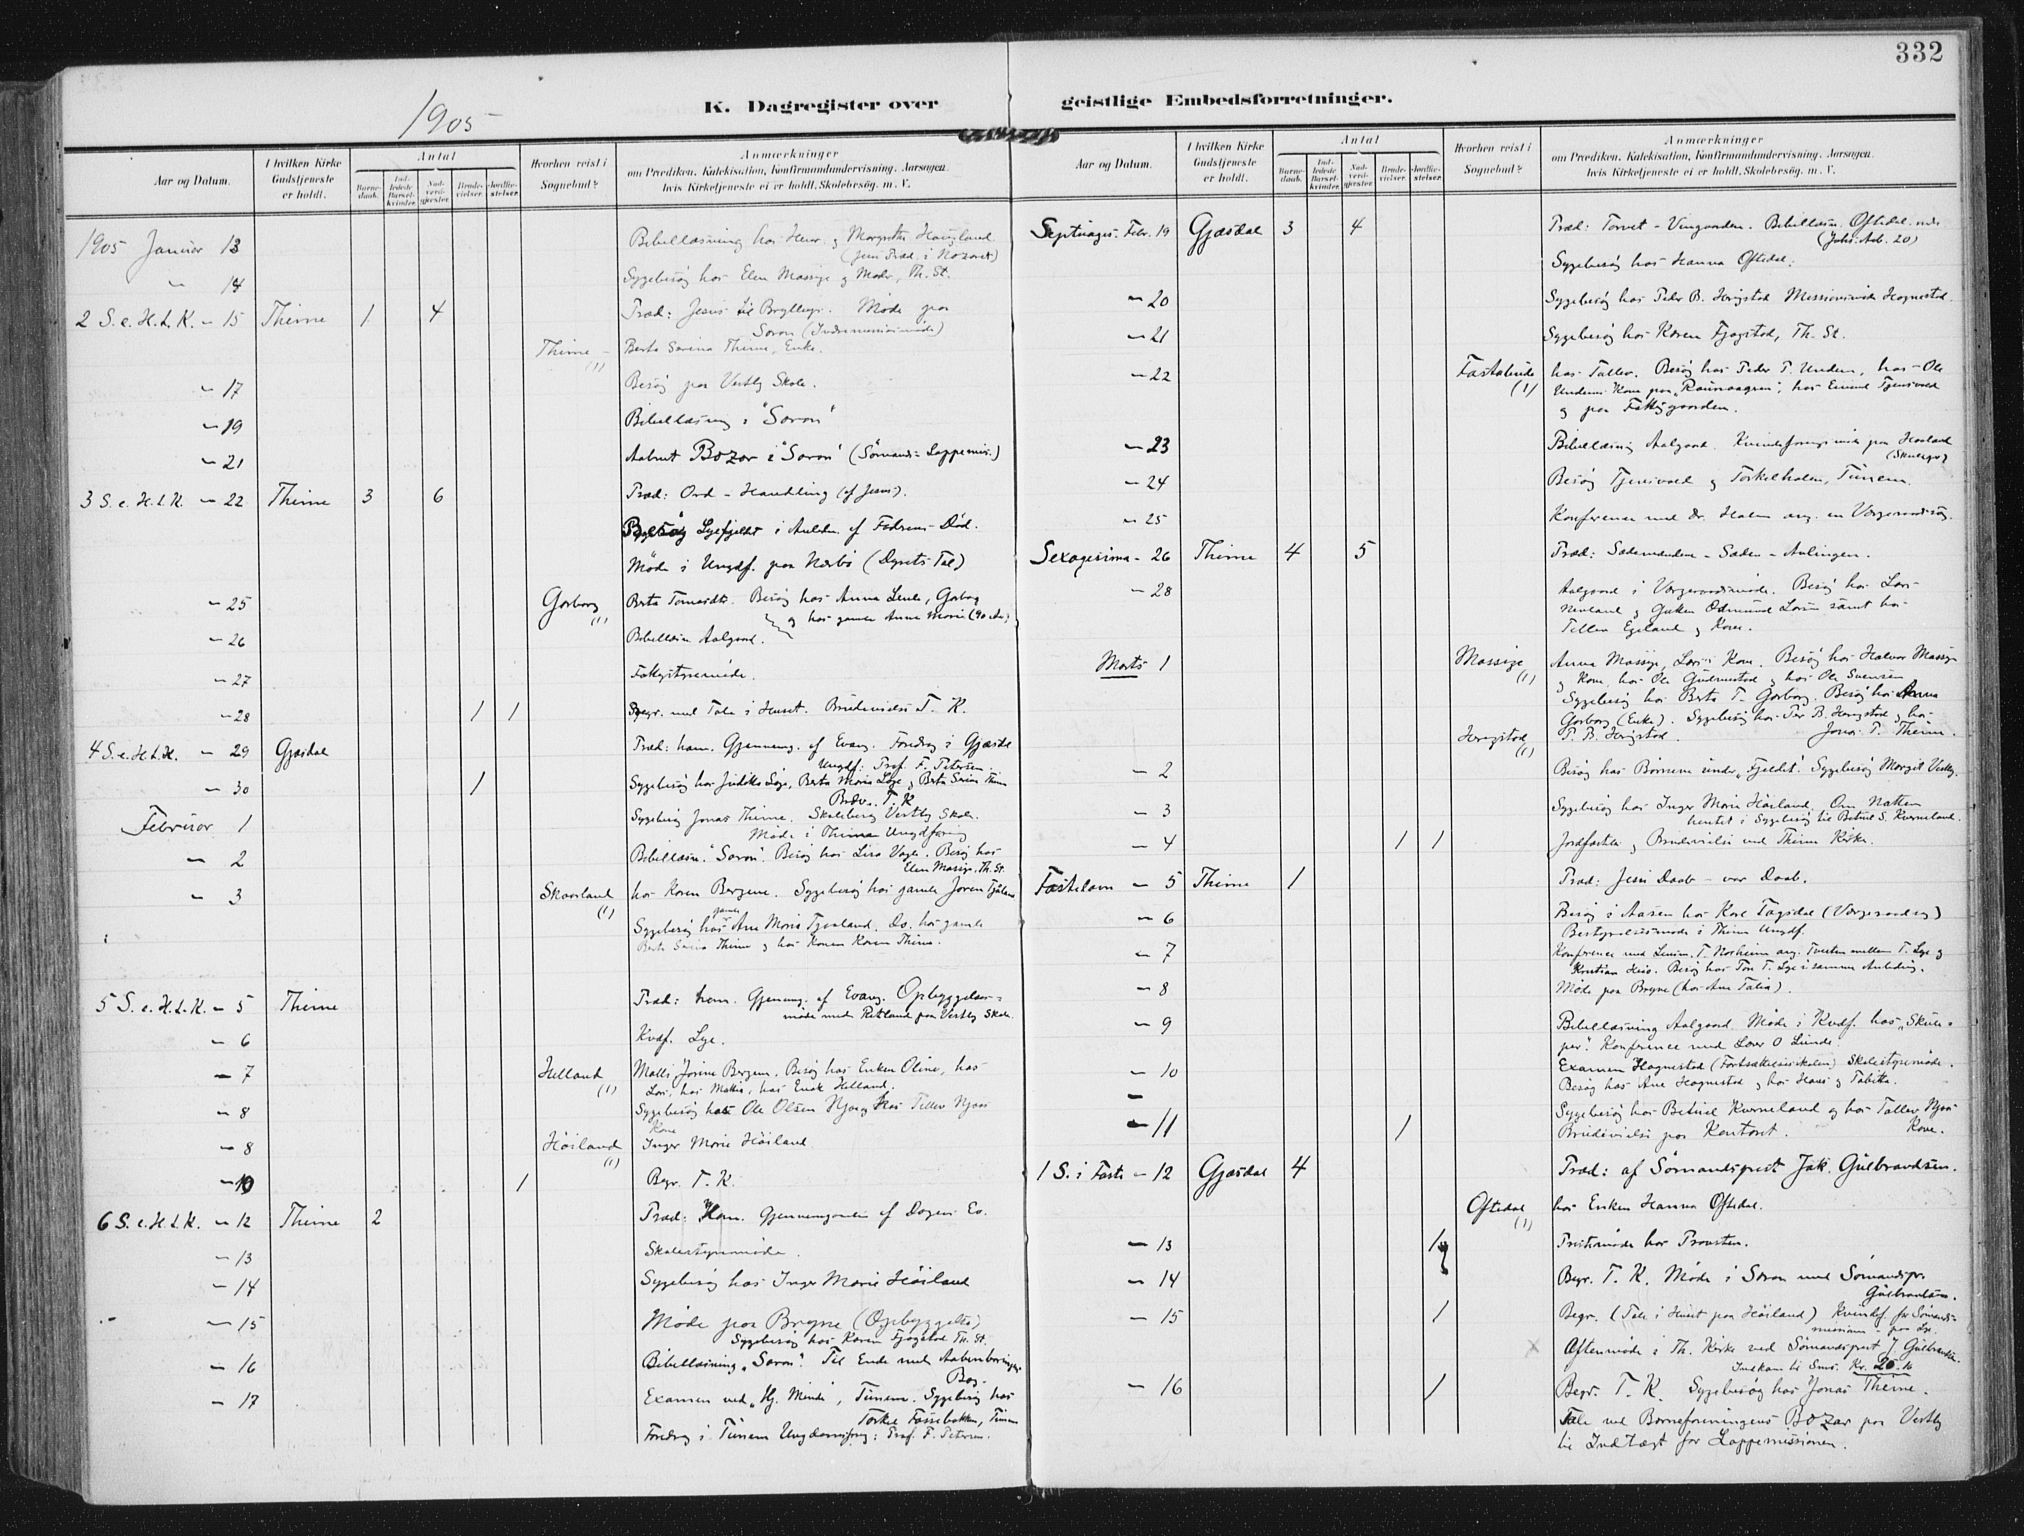 332
K. Dagregister over geistlige Embedsforretninger.
1905
Aar og Datum.
I hvilken Kirke Gudstjeneste er holdt.
Antal
Barne-daab.
Ind-ledede Barsel-kvinder.
Nad-verd-gjester.
Brude-vielser.
Jordfæ-stelser.
Hvorhen reist i Sognebud?
Anmærkninger
om Prædiken, Katekisation, Konfirmandundervisning, Aarsagen,
hvis Kirketjeneste ei er holdt, Skolebesøg, m. V.
1905 Januar 13 Bibellæsning hos Henr. og Margrethe Haugland
(Jesu Præd. i Nazaret)
" 14 Sygebesøg hos Elen Massige og Moder, Th. St.
2 S. e. H. 3. K. - 15 Thime 1 4 Præd: Jesus til Bryllup. Møde paa
Saron (Indremissionsmøde)
Thime (1) Berta Serina Thime, Enke.
- 17 Besøg paa Vestly Skole.
- 19 Bibellæsning i "Saron"
- 21 Aabnet Bazar i "Saron" (Sømands- Lappemis.)
3 S. e. H. 3. K. - 22 Thime 3 6 Præd: Ord - Handling (af Jesus).
Lyefjeldet i Anledn. af Fadrens Død.
Møde i Ungdf. paa Nærbø (Dyrets Tal)
- 25 Garborg (1) Berta Tomasdtr. Besøg hos Anna Lende, Garborg
og hos gamle Anne Marie (90 Aar)
- 26 Bibellæsn. Aalgaard.
- 27 Fattigstyremøde.
- 28 1 1 Begr. med Tale i Huset. Brudevielse T. K.
4 S. e. H. 3. K. - 29 Gjæsdal Præd: hom. Gjennemg. af Evang. Foredrag i Gjæsdal
Ungdf: Prof. F. Petersen.
- 30 1 Sygebesøg hos Judithe Lye, Berta Marie Lye og Berta Serine Thime
Brdv. T. K
Februar 1 Sygebesøg Jonas Thime. Skolebesøg Vestly Skole.
Møde i Thime Ungdforening
- 2 Bibellæsn. "Saron". Besøg hos Lisa Vagle. Besøg hos
Elen Massige, Th. St.
- 3 Skaarland (1) hos Karen Bergene. Sygebesøg hos gamle Joren Tjåland
Sygebesøg hos gamle Ane Marie Tjaaland. Do. hos gamle
Berte Serina Thime og hos Konen Karen Thime.
5 S. e. H. 3. K. - 5 Thime Præd: hom. Gjennemg. af Evang. Opbyggelses-
møde med Retland paa Vestly Skole.
- 6 Kvdf. Lye.
- 7 Helland (1) Malli Jorine Bergene. Besøg hos Enken Oline, hos
Lars, hos Mattis, hos Enok Helland.
- 8 Sygebesøg hos Ole Olsen Njaa og hos Tellev Njaas
Kone
- 8 Høiland (1) Inger Marie Høiland
- 10 1 Begr. T. K.
6 S. e. H. 3. K. - 12 Thime 2 Præd: Hom. Gjennemgaaelse af Dagens Ev.
- 13 Skolestyremøde.
- 14 Sygebesøg hos Inger Marie Høiland
- 15 Møde paa Bryne (Opbyggelse)
Sygebesøg hos Karen Fjogstad Th. St.
- 16 Bibellæsning "Saron". Til Ende med Aabenbaringens
Bog.
- 17 Examen ved "Hj. Minde", Tunem. Sygebesøg hos
Torkel Fossebakken, Tunem
Foredrag i Tunem Ungdomsforg: Prof. F. Petersen.
Aar og Datum.
I hvilken Kirke Gudstjeneste er holdt.
Antal
Barne-daab.
Ind-ledede Barsel-kvinder.
Nad-verd-gjester.
Brude-vielser.
Jordfæ-stelser.
Hvorhen reist i Sognebud?
Anmærkninger
om Prædiken, Katekisation, Konfirmandundervisning, Aarsagen,
hvis Kirketjeneste ei er holdt, Skolebesøg, m. V.
Septuages. Febr. 19 Gjæsdal 3 4 Præd: Torvet - Vingaarden. Bibellæsn. Oftedal
(Johs. Aab. 20)
Sygebesøg hos Hanna Oftedal.
- 20 Sygebesøg hos Peder B. Herigstad Missionsmøde Hognestad.
- 21 Sygebesøg hos Karen Fjogstad, Th. St.
- 22 (1) hos Tallev. Besøg hos Peder T. Undem, hos Ole
Undems Kone paa "Raunaagren", hos Eivind Tjensvold
og paa Fattiggaarden.
- 23 Bibellæsning Aalgaard. Kvindeforeningsmøde paa Haaland
- 24 Besøg Tjensvold og Torkelholen, Tunem.
- 25 Konference med Dr. Holm ang. en Værgeraadssag.
Sexagesima - 26 Thime 4 5 Præd: Sædemanden - Sæden - Avlingen.
- 28 Aalgaard i Værgeraadsmøde. Besøg hos Lars
Nevland og Enken Odmund Larsen samt hos
Tellev Egeland og Kone.
Marts 1 Massige (1) Anna Massige, Lars's Kone. Besøg hos Halvor Massige
og Kone, hos Ole Gudmestad og hos Ole Svensen
Sygebesøg hos Berta T. Garborg. Besøg hos Anna
Garborg (Enke). Sygebesøg hos Per B. Herigstad og hos
Jonas P. Thime.
Herigstad (1) P. B. Herigstad.
- 2 Besøg hos Børnene under "Fjeldet". Sygebesøg Margit Vestly.
- 3 Sygebesøg hos Inger Marie Høiland. Om Natten
hentet i Sygebesøg til Betuel S. Kverneland.
- 4 1 1 Jordfæstelse og Brudevielse ved Thime Kirke.
Fastelavn - 5 Thime 1 Præd: Jesu Daab - vor Daab.
- 6 Besøg i Aasen hos Kone Tagsdal (Værgeraadssag)
Bestyrelsesmøde i Thime Ungdf.
- 7 Konference med Lensm. T. Norheim ang. Tvisten mellem T. Lye og
Kristian Heiø. Besøg hos Ton T. Lye i samme Anledning.
- 8 Møde paa Bryne (hos Ane Talia).
- 9 Bibellæsning Aalgaard. Møde i Kvdf. hos "Skule-
per". Konference med Lærer O Lunde.
- 10 Examen Hognestad (Fortsættelsesskolen) Skolestyremøde.
Besøg hos Ane Hognestad og hos Hans og Tabitta.
- Sygebesøg hos Betuel Kverneland og hos Tallev Njaas
Kone.
- 11 1 Brudevielse paa Kontoret.
1 S. i Faste - 12 Gjæsdal 4 Præd: af Sømandsprest Jak. Gulbrandsen.
Oftedal (1) hos Enken Hanna Oftedal.
- 13 Prestemøde hos Provsten.
- 14 1 Begr. T. K. Møde i Saron med Sømandspr.
Gulbrandsen.
- 15 1 Begr. (Tale i Huset paa Høiland) Kvindef. for Sømands-
missionen - paa Lye.
x Aftenmøde i Th. Kirke ved Sømandsprest J. Gulbrandsen.
Indkom til Sms. Kr. 20.
- 16 1 Begr. T. K. Sygebesøg hos Jonas Thime.
Tale ved Barneforeningens Bazar paa Vestly
til Indtægt for Lappemissionen.